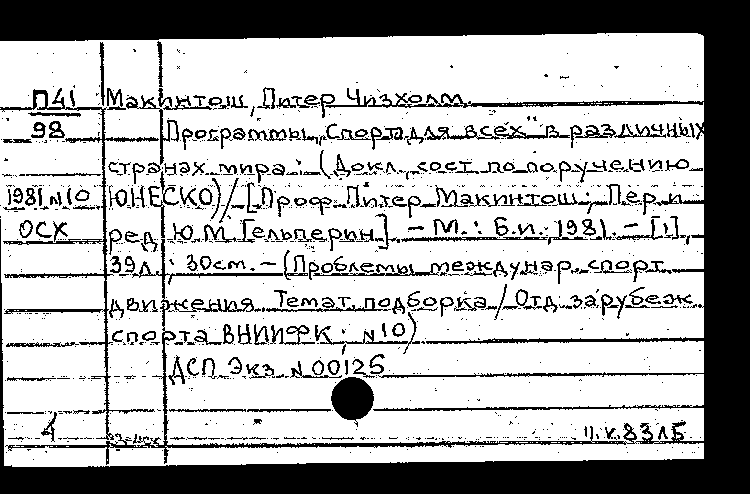 П41 Макинтош, Питер Чизхолм.
98 Программы „Спорт для всех" в различных
странах мира: (Докл., сост. по поручению
1981 N10 ЮНЕСКО) / [Проф. Питер Макинтош; Пер. и
ОСХ ред. Ю.М. Гельперин]. – М.: Б.и., 1981. – [1],
39л.; 30см. – (Проблемы междунар. спорт.
движения. Темат. подборка / Отд. зарубеж.
спорта ВНИИФК; N10)
ДСП Экз. N 00125
4 II.К.83 ЛБ